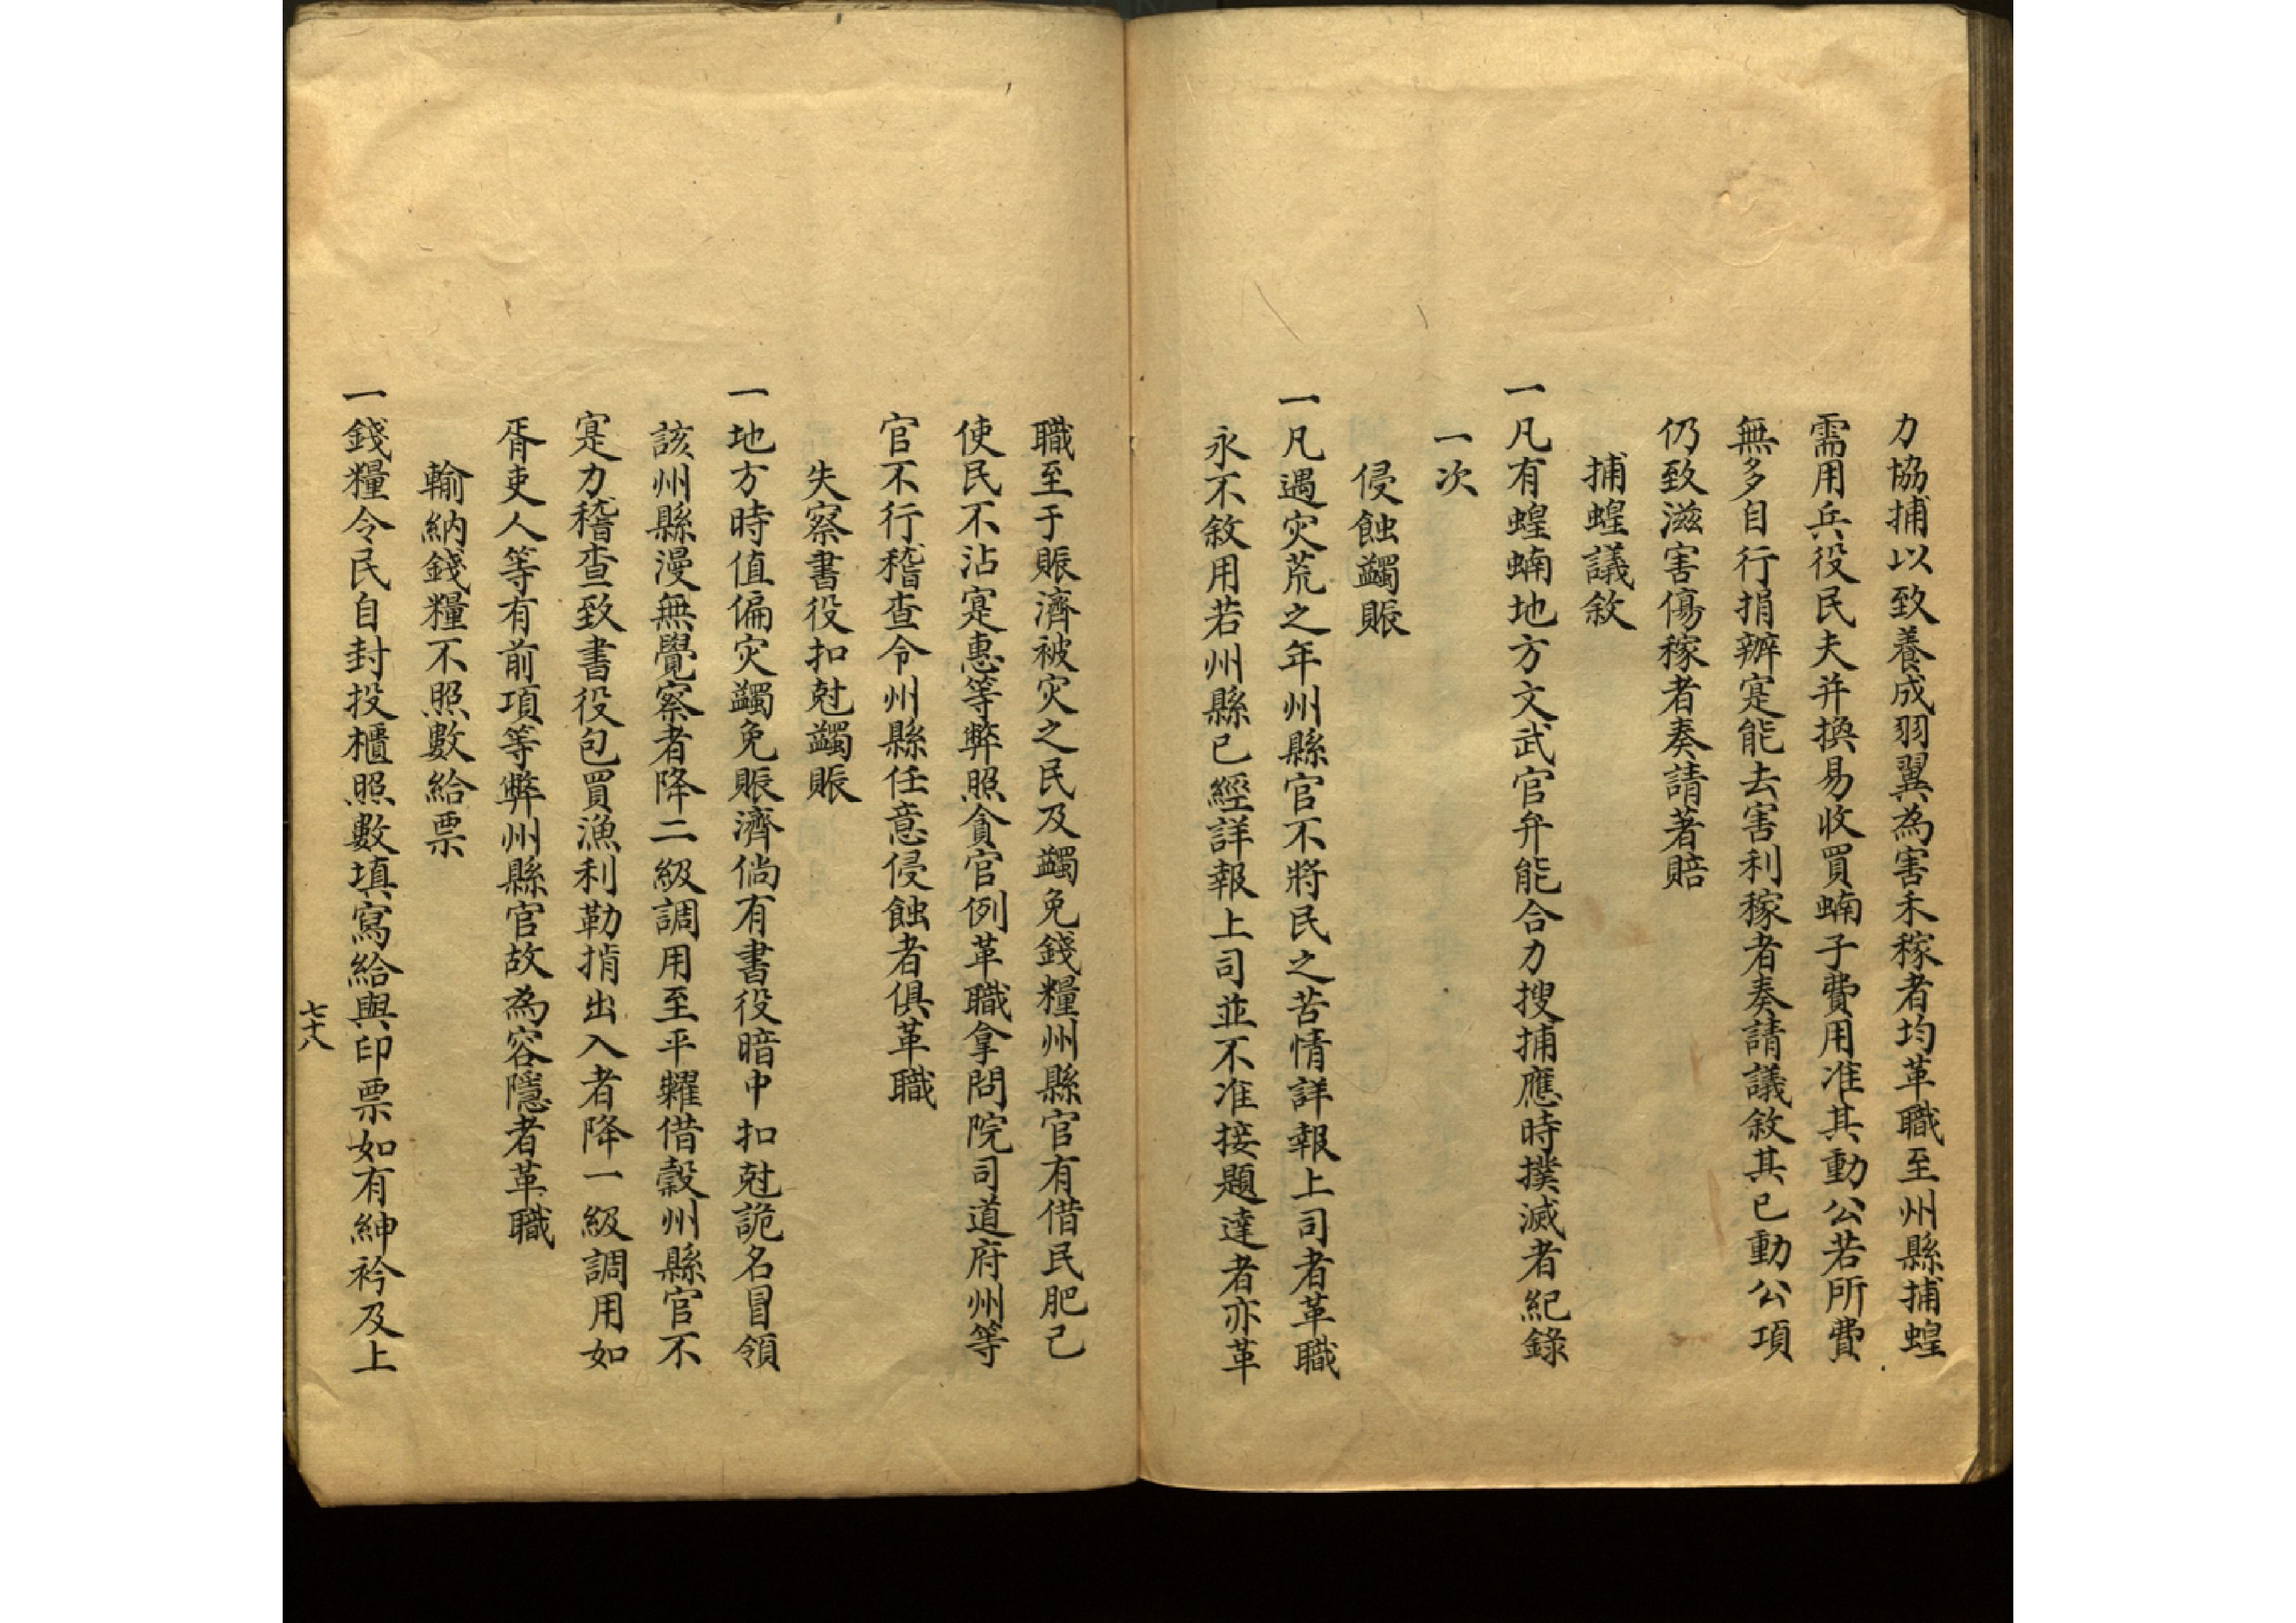 力協捕以致養成羽翼為害禾稼者均革職至州縣捕蝗
需用兵役民夫并換易收買蝻子費用准其動公若所費
無多自行捐辦寔能去害利稼者奏請議敘其已動公項
仍致滋害傷稼者奏請著賠
捕蝗議敘
一凡有蝗蝻地方文武官弁能合力搜捕應時撲滅者紀錄
一次
侵蝕蠲賑
一凡遇灾荒之年州縣官不將民之苦情詳報上司者革職
永不敘用若州縣已經詳報上司並不准接題達者亦革
職至于賑濟被灾之民及蠲免錢糧州縣官有借民肥己
使民不沾寔惠等弊照貪官例革職拿問院司道府州等
官不行稽查令州縣任意侵蝕者俱革職
失察書役扣尅蠲賑
一地方時值偏灾蠲免賑濟倘有書役暗中扣尅詭名冒領
該州縣漫無覺察者降二級調用至平糶借穀州縣官不
寔力稽查致書役包買漁利勒掯出入者降一級調用如
胥吏人等有前項等弊州縣官故為容隱者革職
輸納錢糧不照數給票
一錢糧令民自封投櫃照數填寫給與印票如有紳衿及上
七十八